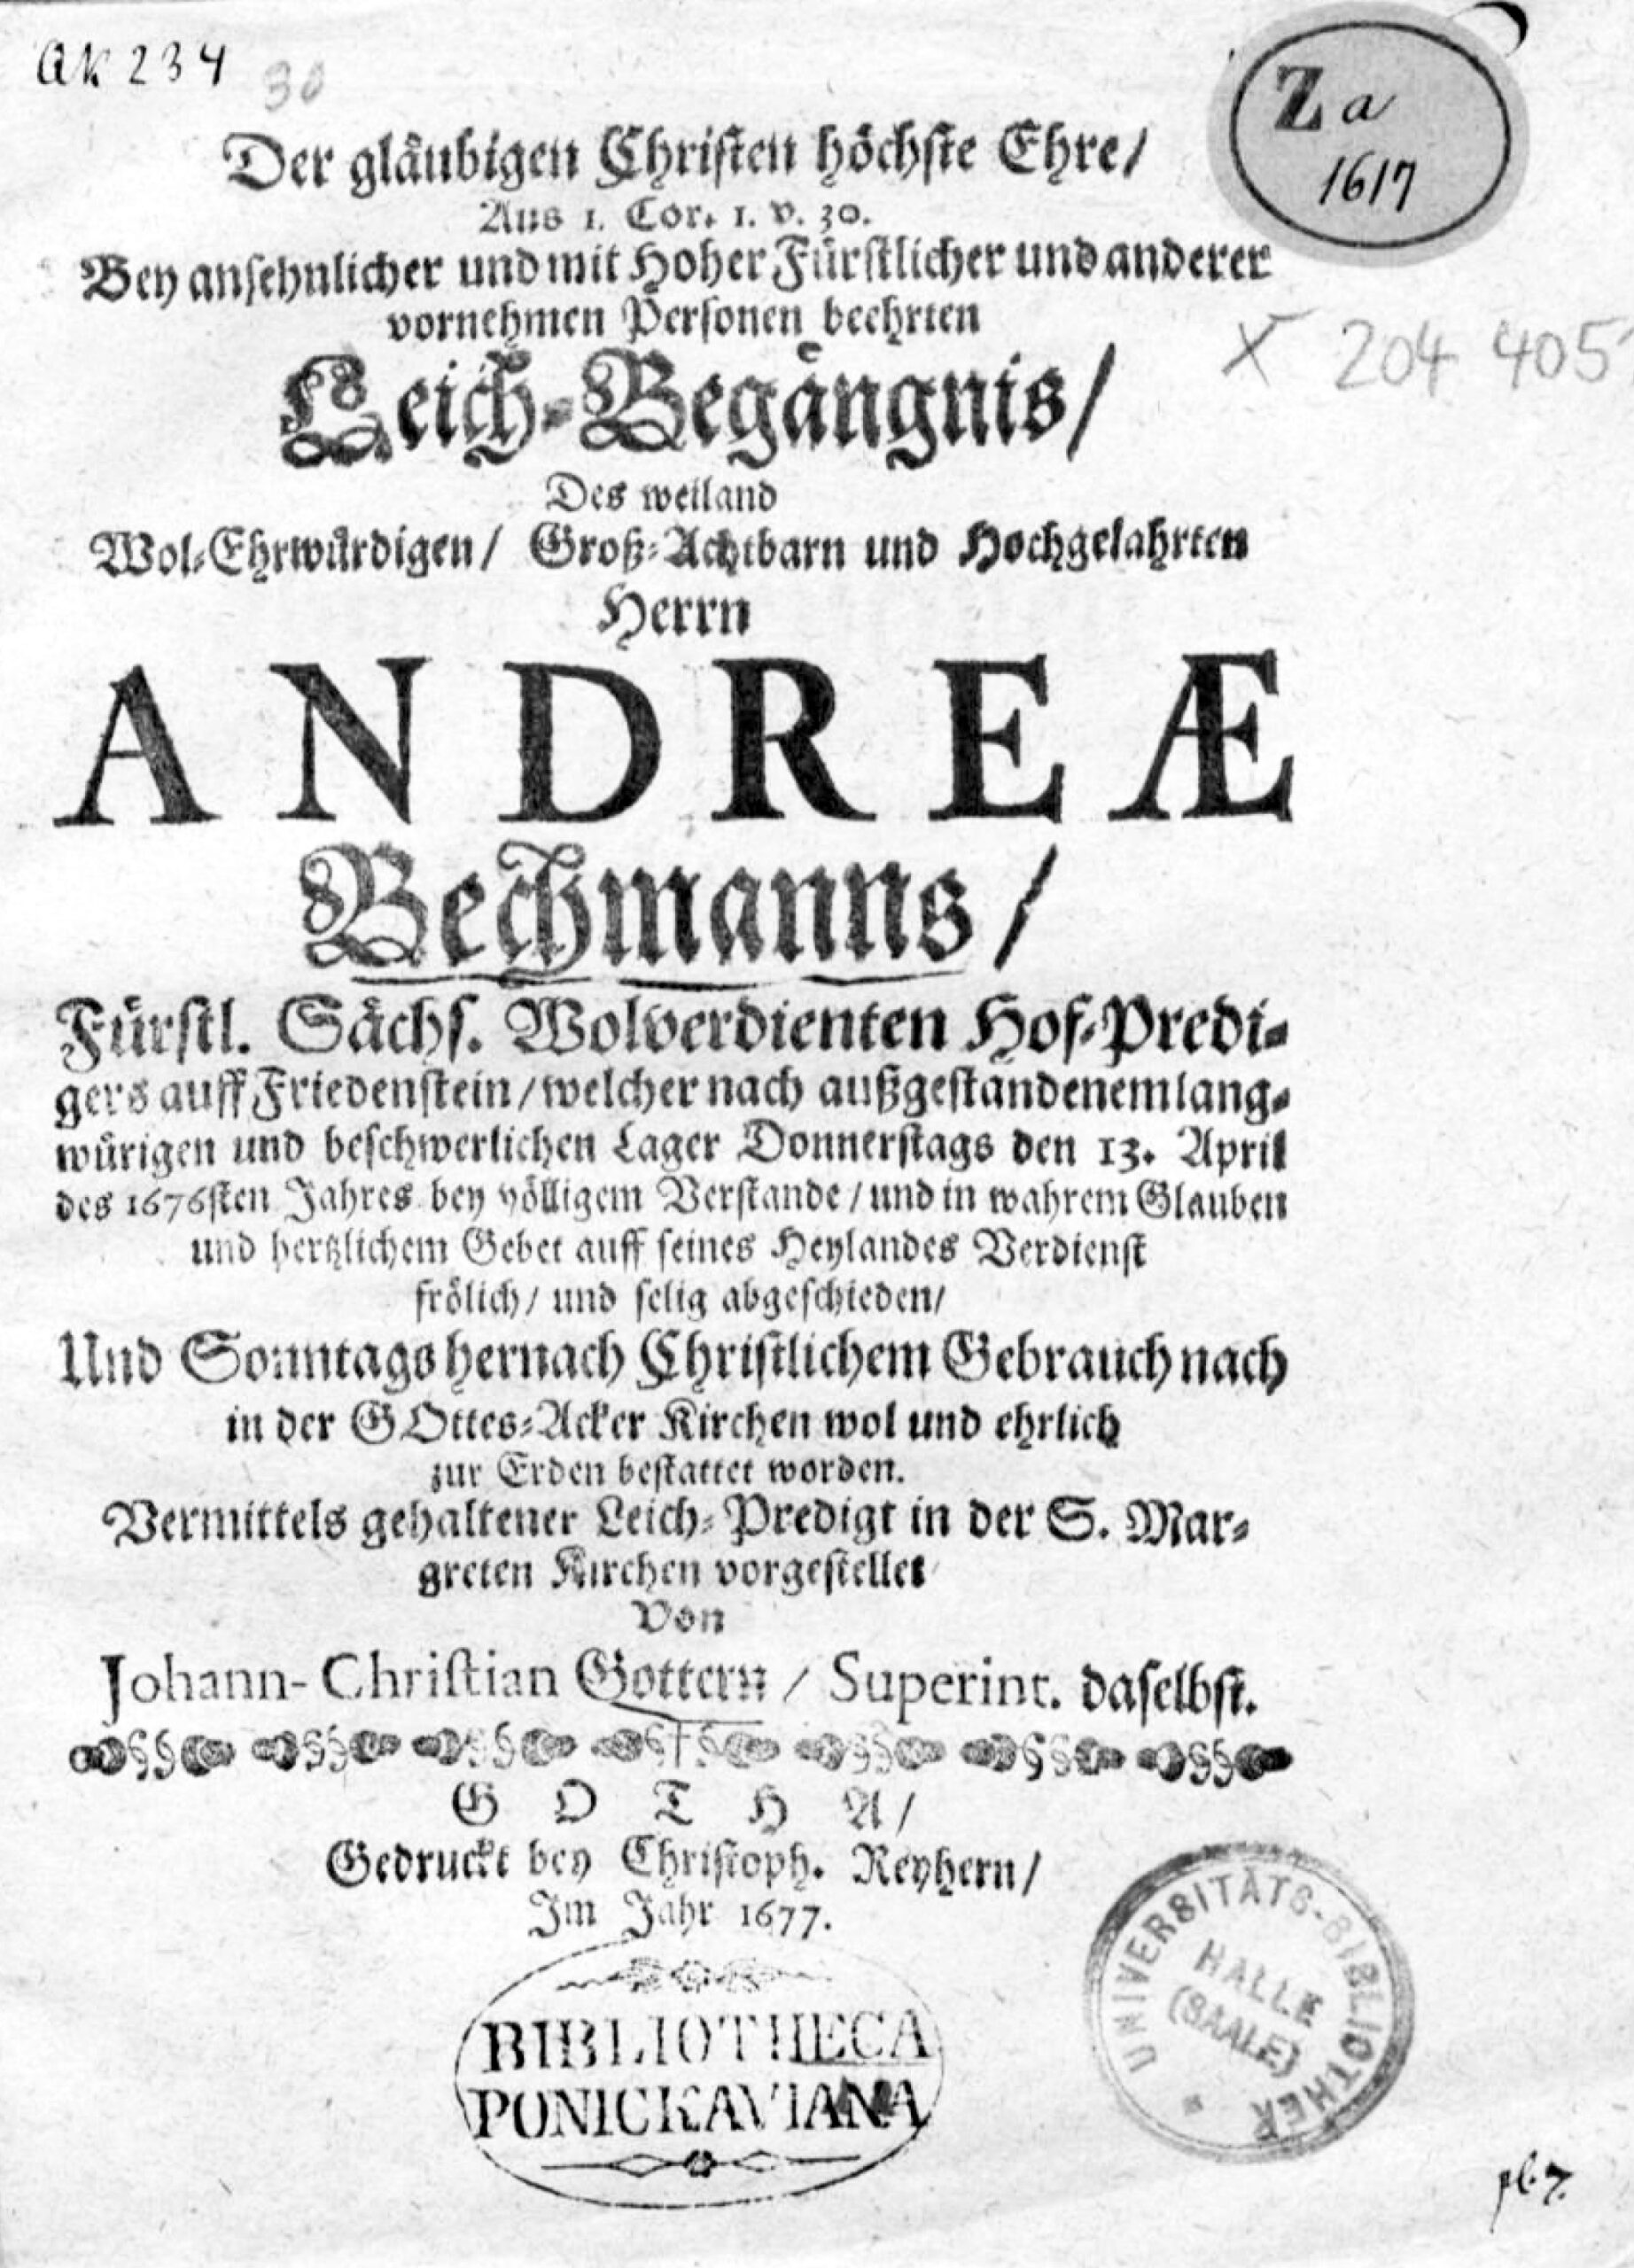 AK 234
30
Za
1617
Der gläubigen Christen höchste Ehre/
Aus 1. Cor. 1. v. 30.
Bey ansehnlicher und mit Hoher Fürstlicher und anderer
vornehmen Personen beehrten
X 204 405
Leich-Begängnis/
Des weiland
Wol-Ehrwürdigen/ Groß-Achtbarn und Hochgelahrten
Herrn
ANDREÆ
Bechmanns/
Fürstl. Sächs. Wolverdienten Hof-Predi-
gers auff Friedenstein/ welcher nach außgestandenem lang-
würigen und beschwerlichen Lager Donnerstags den 13. April
des 1676sten Jahres bey völligem Verstande/ und in wahrem Glauben
und hertzlichem Gebet auff seines Heylandes Verdienst
frölich/ und selig abgeschieden/
Und Sonntags hernach Christlichem Gebrauch nach
in der GOttes-Acker Kirchen wol und ehrlich
zur Erden bestattet worden.
Vermittels gehaltener Leich-Predigt in der S. Mar-
greten Kirchen vorgestellet
Von
Johann-Christian Gottern/ Superint. daselbst.
GOTHA/
Gedruckt bey Christoph. Reyhern/
Im Jahr 1677.
BIBLIOTHECA
PONICKAVIANA
UNIVERSITÄTS-BIBLIOTHEK
HALLE
(SAALE)